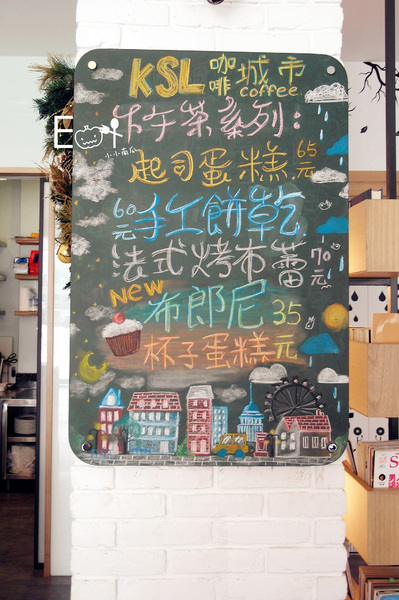 KSL 咖啡 城市 coffee
下午茶系列:
起司蛋糕 65元
60元 手工餅乾
法式烤布蕾 70元
NEW 布郎尼 35元
杯子蛋糕
小小南瓜